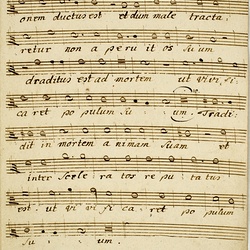 onem ductus est et dum male tracta:
retur non a peru it os su um
draditus est ad mortem ut vivi fi:
ca ret po pulum su : um. Tradi:
dit in mortem a nimam suam et
inter Scele ra tos re pu ta tus
est. ut vi vi fi ca: ret po pulum
su : um.